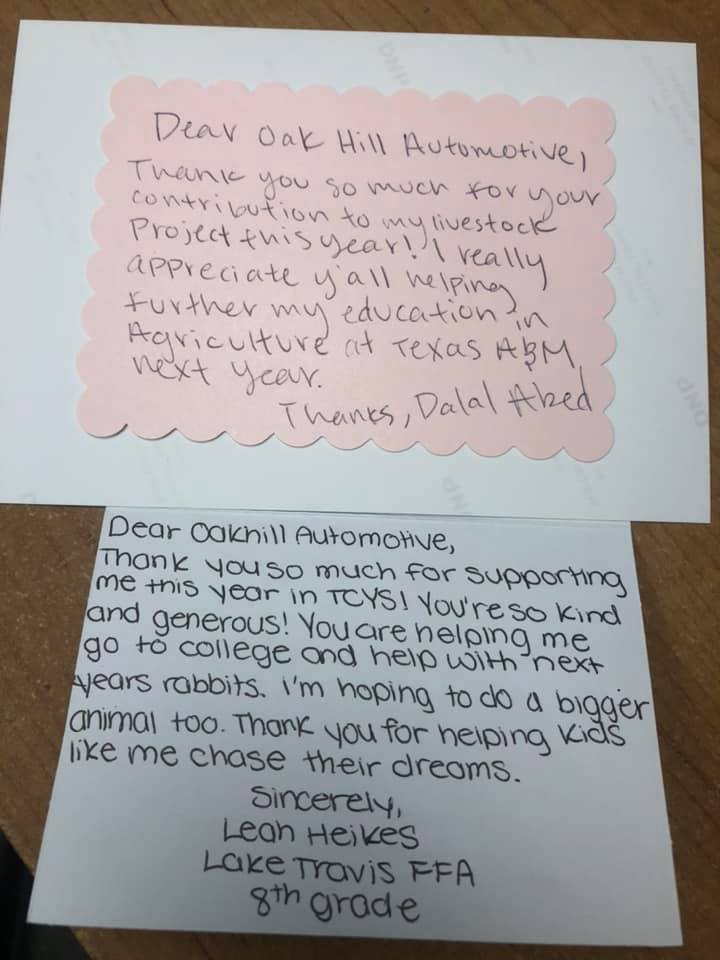 Dear Oak Hill Automotive,
Thank you so much for your
contribution to my livestock
Project this year! I really
appreciate y'all helping
further my education in
Agriculture at Texas A&M
next year.
Thanks, Dalal Abed
Dear Oakhill Automotive,
Thank you so much for supporting
me this year in TCYS! You're so kind
and generous! You are helping me
go to college and help with next
years rabbits. I'm hoping to do a bigger
animal too. Thank you for helping kids
like me chase their dreams.
Sincerely,
Leah Heikes
Lake Travis FFA
8th grade